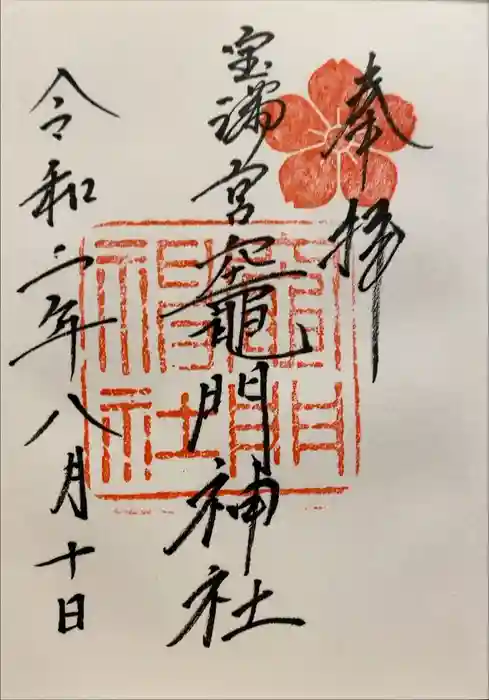 奉拝
宝満宮竈門神社
令和二年八月十日
竈門神社